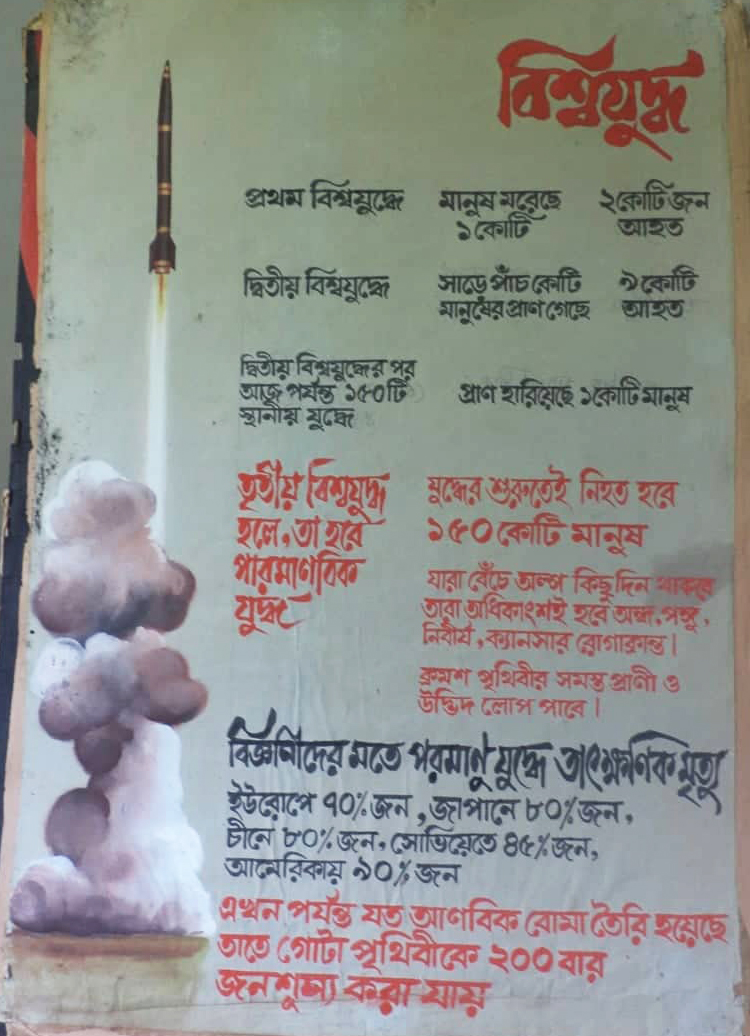 বিশ্বযুদ্ধ
প্রথম বিশ্বযুদ্ধে মানুষ মরেছে ২কোটি জন
১ কোটি আহত
দ্বিতীয় বিশ্বযুদ্ধে সাড়ে পাঁচ কোটি ৯ কোটি
মানুষের প্রাণ গেছে আহত
দ্বিতীয় বিশ্বযুদ্ধের পর
আজ পর্যন্ত ১৫০টি প্রাণ হারিয়েছে ১কোটি মানুষ
স্থানীয় যুদ্ধে
তৃতীয় বিশ্বযুদ্ধ
হলে, তা হবে
পারমাণবিক
যুদ্ধ
যুদ্ধের শুরুতেই নিহত হবে
১৫০ কোটি মানুষ
যারা বেঁচে অল্প কিছু দিন থাকবে
তারা অধিকাংশই হবে অন্ধ, পঙ্গু,
নিবীর্য, ক্যানসার রোগাক্রান্ত।
ক্রমশ পৃথিবীর সমস্ত প্রাণী ও
উদ্ভিদ লোপ পাবে।
বিজ্ঞানীদের মতে পরমাণু যুদ্ধে তাৎক্ষণিক মৃত্যু
ইউরোপে ৭০% জন, জাপানে ৮০% জন,
চীনে ৮০% জন, সোভিয়েতে ৪৫% জন,
আমেরিকায় ৯০% জন
এখন পর্যন্ত যত আণবিক বোমা তৈরি হয়েছে
তাতে গোটা পৃথিবীকে ২০০ বার
জনশূন্য করা যায়